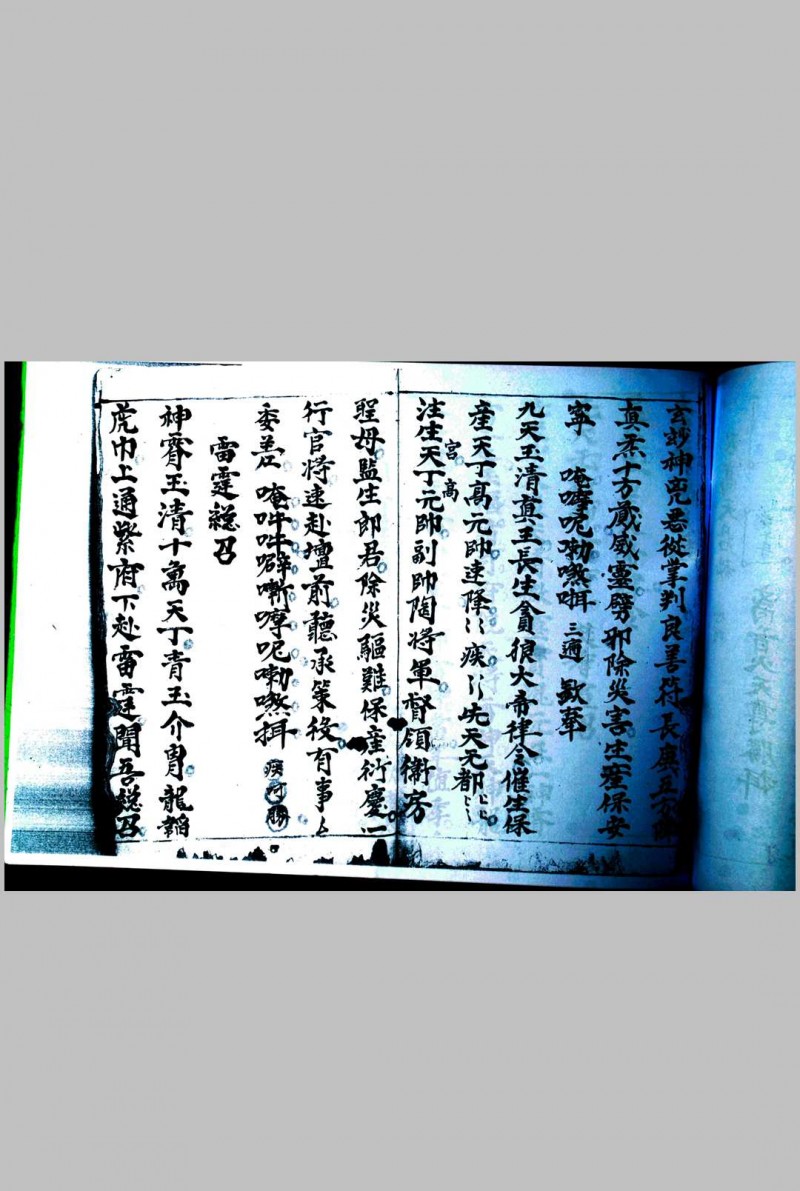 玄妙神兕惡從掌判良善符長庚五方降
真炁十方藏威靈劈邪除災害生產保安
寧 唵嚀呢嘞㘕咡 三遍 歎葷
九天玉清真王長生貪狼大帝律令催生保
產天丁高元帥速降〻疾〻先天元都〻〻
宮高
注生天丁元帥副帥陶將軍督領衛房
聖母監生郎君除災驅難保產衍慶一
行官將速赴壇前聽承策役有事
委差 唵吽吽噼嘶嚀呢嘞
雷霆總召
神霄玉清十萬天丁青玉介冑龍韜
虎巾上通紫府下赴雷霆聞吾總召